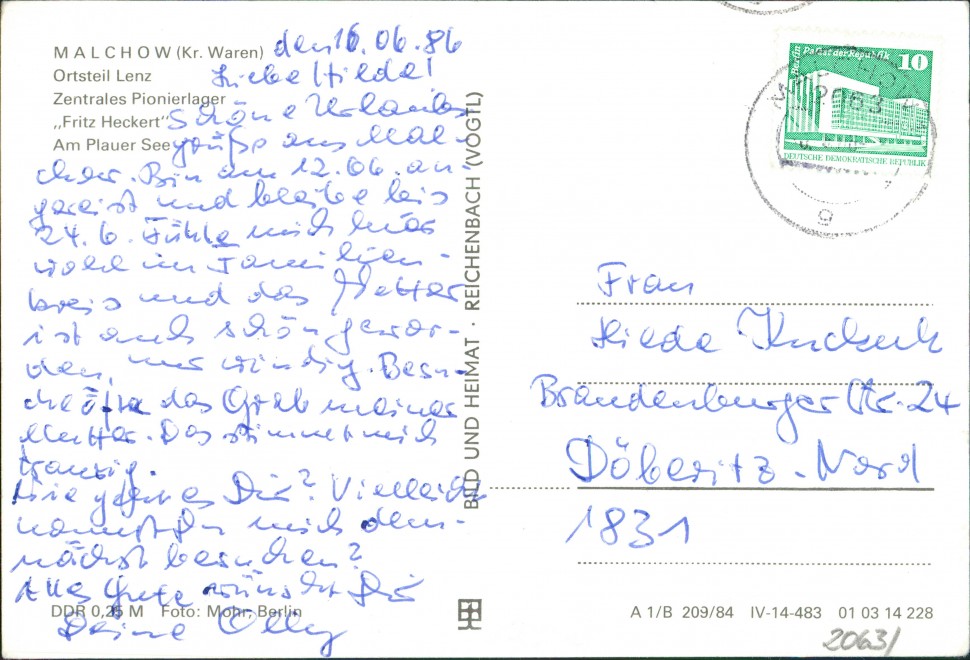 MALCHOW (Kr. Waren)
Ortsteil Lenz
Zentrales Pionierlager
„Fritz Heckert"
Am Plauer See
den 16.06.86
Liebe Hilde!
Schöne Urlaubs
grüße aus Mal-
chow. Bin am 12.06. an-
gereist und bleibe bis
24.6. Fühle mich hier
wohl im Familien-
kreis und das Wetter
ist auch schön gewor-
den, nur windig. Besu-
che öfter das Grab meiner
Mutter. Das stimmt mich
traurig.
Wie geht es Dir? Vielleicht
kannst Du mich dem-
nächst besuchen?
Alles Gute wünscht Dir
Deine Olly
DDR 0,25 M Foto: Mohr, Berlin
BILD UND HEIMAT · REICHENBACH (VOGTL)
Palast der Republik
10
DEUTSCHE DEMOKRATISCHE REPUBLIK
2063
g
Frau
Hilda Kuckuk
Brandenburger Str. 24
Döberitz-Nord
1831
A 1/B 209/84 IV-14-483 01 03 14 228
2063/